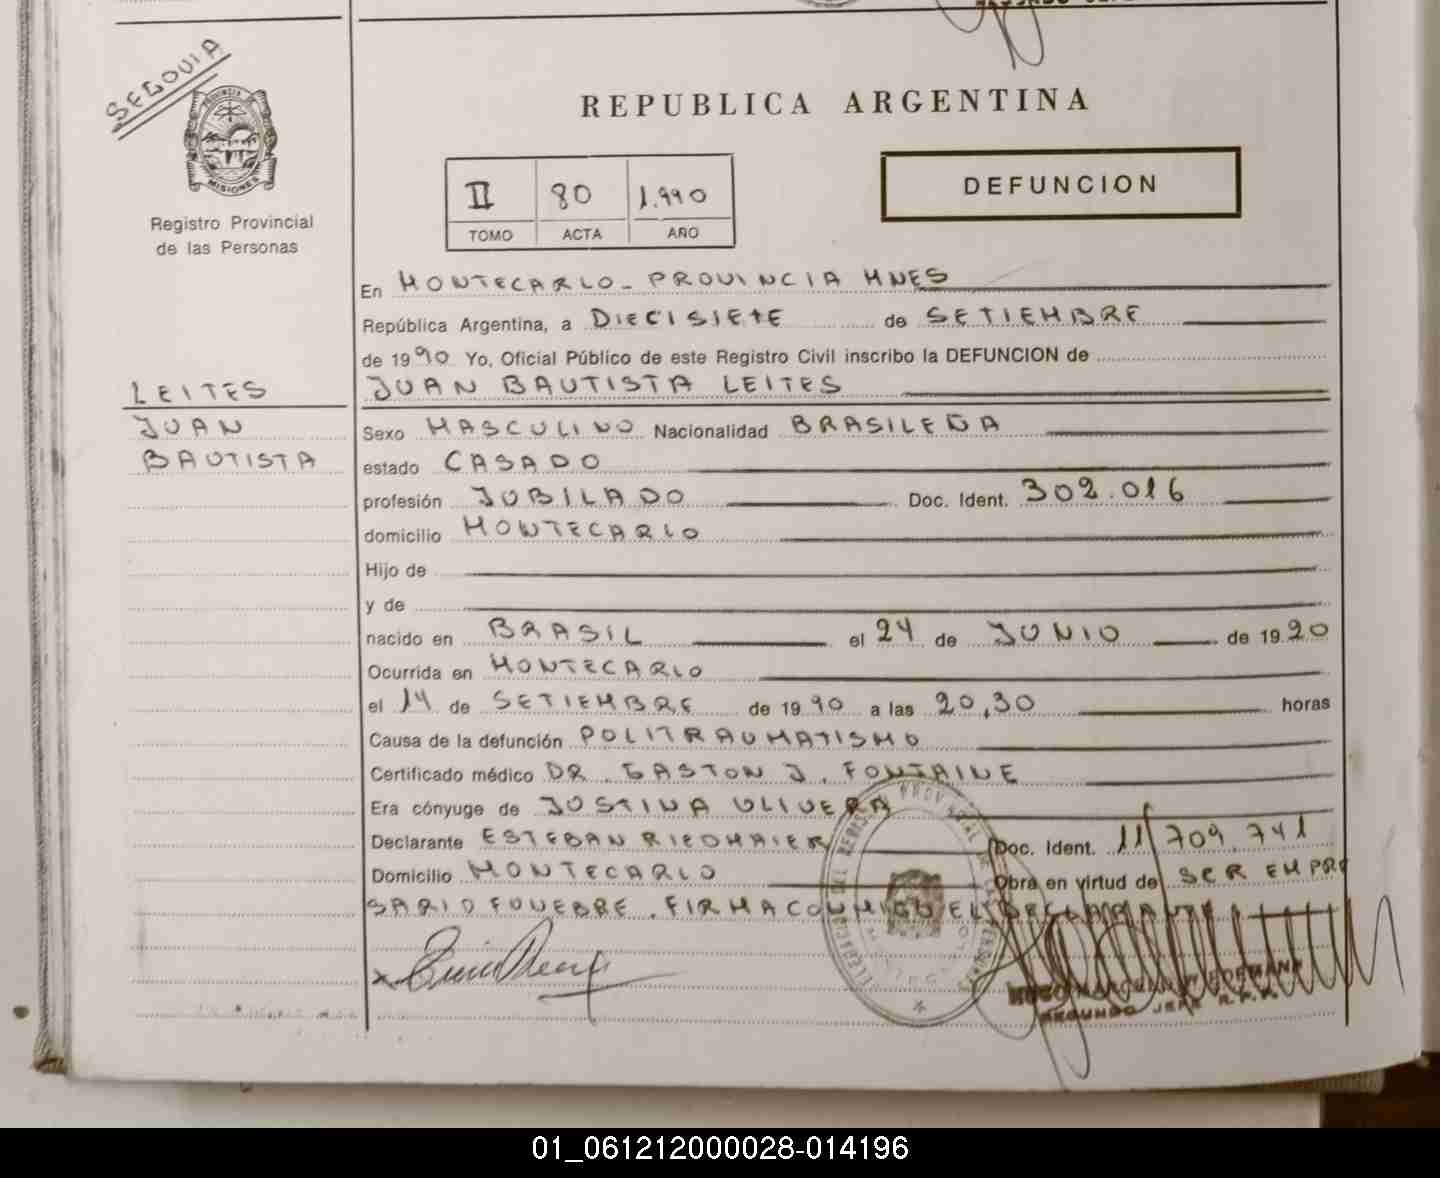 SEGOVIA
PROVINCIA DE
MISIONES
Registro Provincial
de las Personas
REPUBLICA ARGENTINA
II 80 1.990
TOMO ACTA AÑO
DEFUNCION
En MONTECARLO - PROVINCIA MNES
República Argentina, a DIECISIETE de SETIEMBRE
de 1990 Yo, Oficial Público de este Registro Civil inscribo la DEFUNCION de
LEITES
JUAN BAUTISTA LEITES
JUAN
BAUTISTA
Sexo MASCULINO Nacionalidad BRASILEÑA
estado CASADO
profesión JUBILADO Doc. Ident. 302.016
domicilio MONTECARLO
Hijo de
y de
nacido en BRASIL el 24 de JUNIO de 1920
Ocurrida en MONTECARLO
el 14 de SETIEMBRE de 1990 a las 20,30 horas
Causa de la defunción POLITRAUMATISMO
Certificado médico DR. GASTON J. FONTAINE
Era cónyuge de JUSTINA OLIVERA
Declarante ESTEBAN RIEDMAIER Doc. Ident. 11.709.741
Domicilio MONTECARLO Obra en virtud de SER EMPRE
SARIO FUNEBRE. FIRMA CONMIGO EL DECLARANTE
SEGUNDO JEFE R.P.P.
01_061212000028-014196